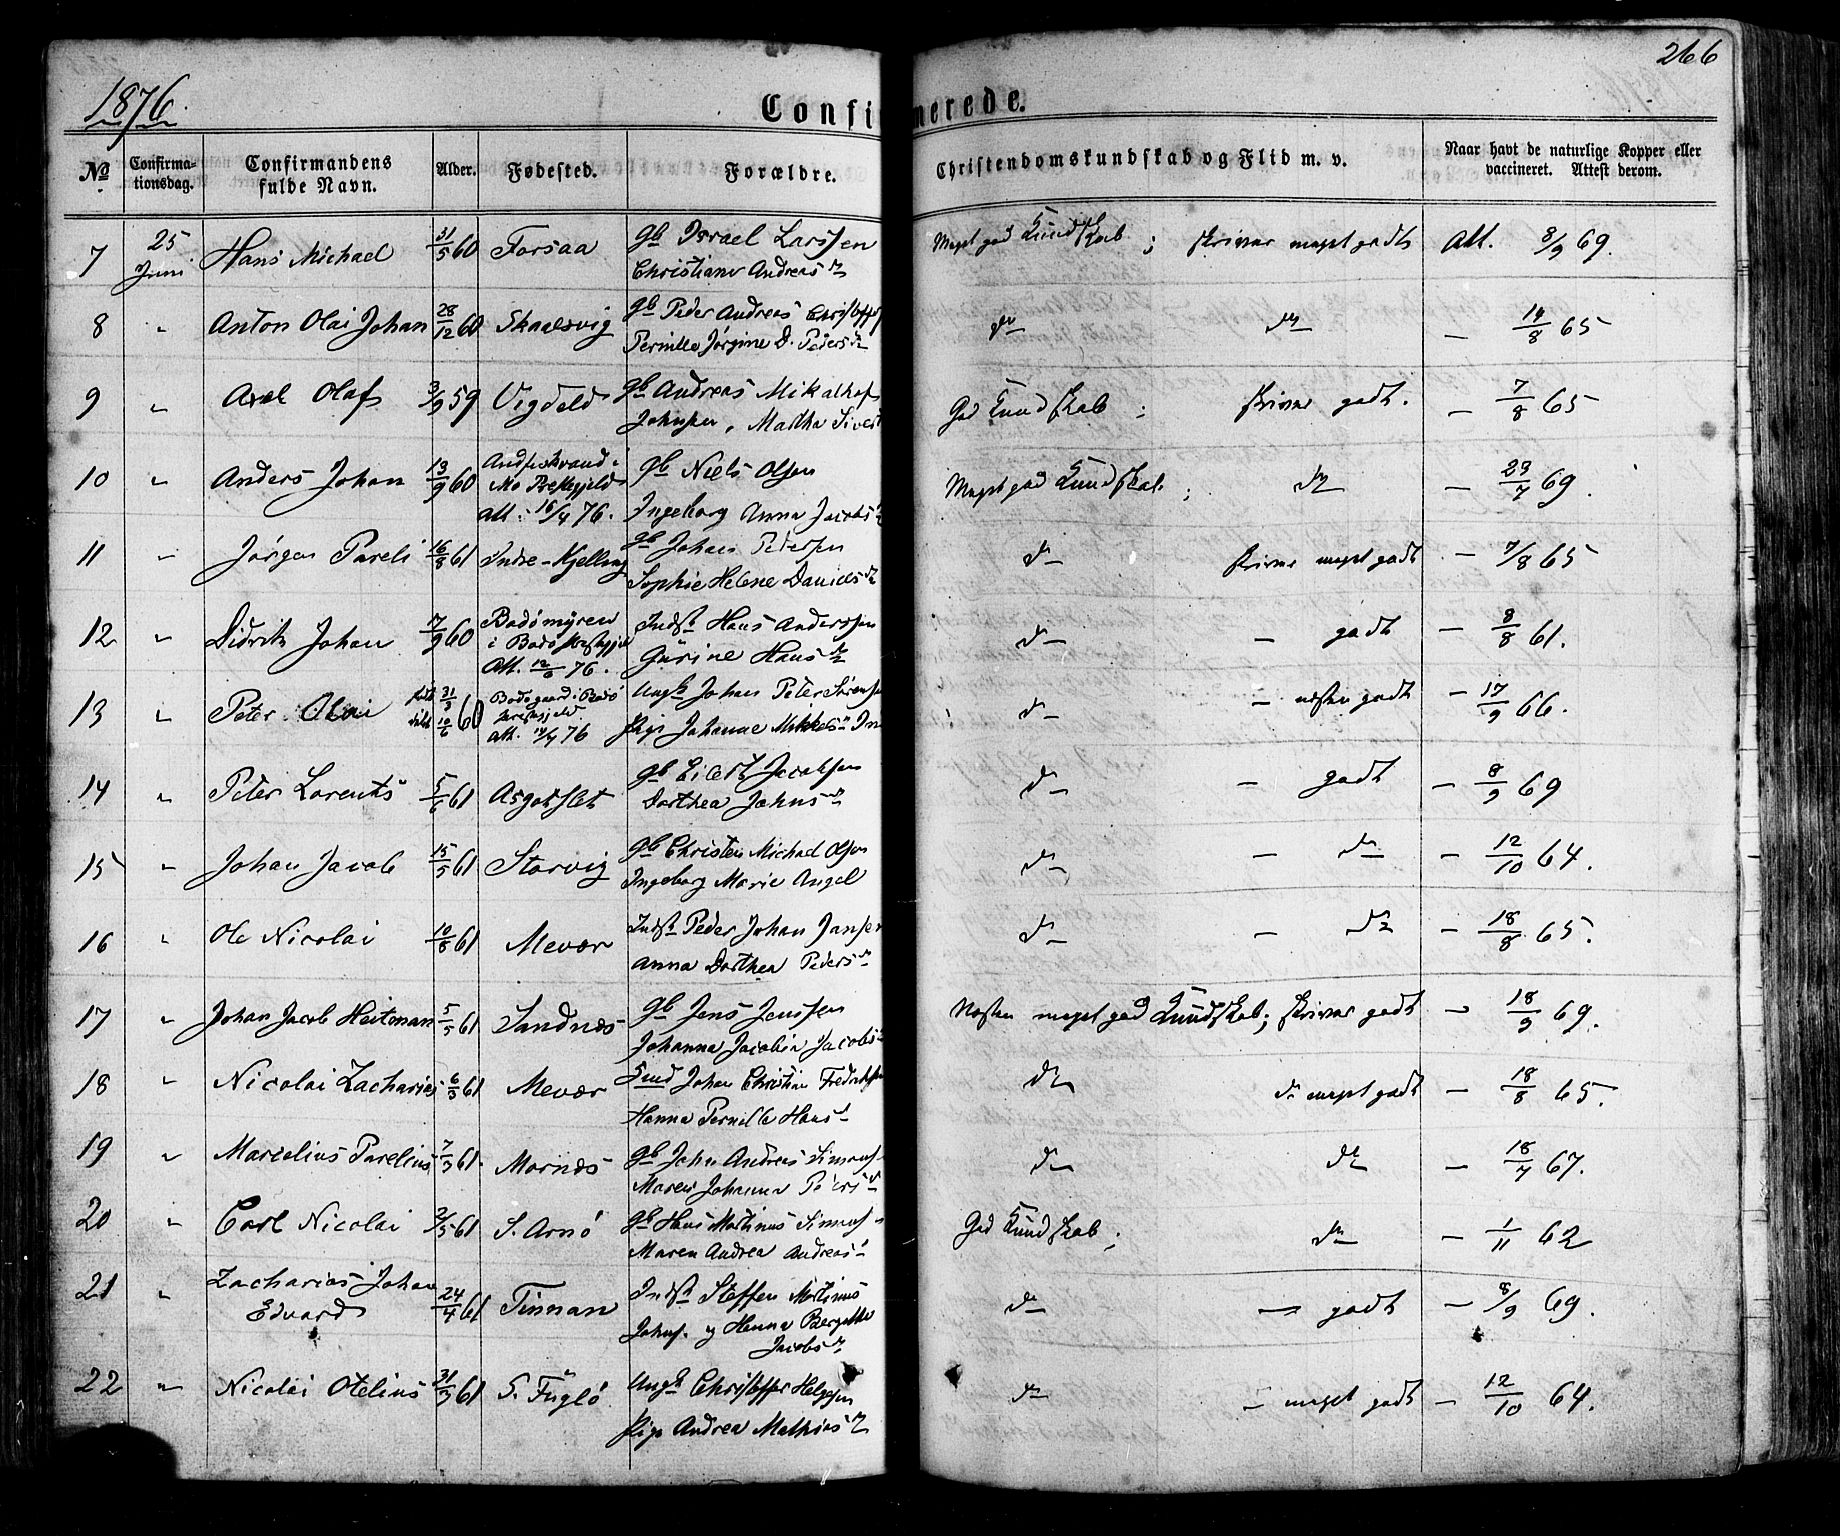 1876.
266
Confi merede.
No
Confirma-
tionsdag.
Confirmandens
fulde Navn.
Alder.
Fødested.
Forældre.
Christendomskundskab og Flid m. v.
Naar havt de naturlige Kopper eller
vaccineret. Attest derom.
7 25 Juni Hans Michael 31/5 60 Forsaa Gb Israel Larssen
Christiane Andreas
Meget god Kundskab; skriver meget godt Att. 8/9 69.
8 " Anton Olai Johan 28/12 60 Skaalsvig Gb Peder Andreas Christoff
Pernille Jørgine D. Peders
do do — 14/8 65
9 " Axel Olaf 3/9 59 Vigdeld Gb Andreas Mikal
Johnsen, Martha Sivert
God Kundskab; skriver godt. — 7/8 65
10 " Anders Johan 13/9 60
Mo Præstegjeld
Att: 16/4 76.
Gb Niels Olsen
Ingeborg Anna Jacobs
Meget god Kundskab; do — 23/7 69.
11 " Jørgen Pareli 16/8 61 Indre-Kjelling Gb Johan Petersen
Sophie Helene Daniels
do skriver meget godt — 7/8 65
12 " Didrik Johan 7/9 60 Bodömyren
i Bodö Præstegjeld
Att. 12/6 76.
Indst Hans Anderssen
Gurine Hans
do — godt — 8/8 61.
13 " Peter Olai 60
Bodøgaard i Bodö
Præstegjeld
Att. 76
Ungk Johan Peter Sörens
Pige Johanna Mikkels
do — næsten godt — 17/9 66.
14 " Peter Lorents 5/6 61 Asgotslet Gb Eilert Jacobsen
Dorthea Jahns
do — godt — 8/9 69
15 " Johan Jacob 15/5 61 Storvig Gb Christen Michael Olsen
Ingeborg Marie Angel
do — do — 12/10 64.
16 " Ole Nicolai 10/8 61 Mevær Indst Peder Johan Janse
Anna Dorthea Peders
do — do — 18/8 65.
17 " Johan Jacob Heitman 5/5 61 Sandnæs Gb Jens Jenssen
Johanna Jacobia Jacobs
Næsten meget god Kundskab; skriver godt — 18/9 69.
18 " Nicolai Zacharias 6/3 61 Mevær Johan Christian Fredriksen
Hanna Pernille Hans
do do meget godt — 18/8 65.
19 " Marcelius Parelius 7/3 61. Mornæs Gb John Andreas Simons
Maren Johanna Peders
do do — 18/7 67.
20 " Carl Nicolai 2/5 61 S. Arnö Gb Hans Martinus Simons
Maren Andrea Andreas
God Kundskab; do — 1/11 62
21 " Zacharias Johan
Edvard 24/4 61 Tinnan Indst Steffen Martinus
Johns. og Hanna Bergitte
Jacobs
do — godt — 8/9 69.
22 " Nicolai Otelius 31/3 61 S. Fuglö Ungk Christoffer Helgesen
Pige Andrea Mathias
do — meget godt — 12/10 64.